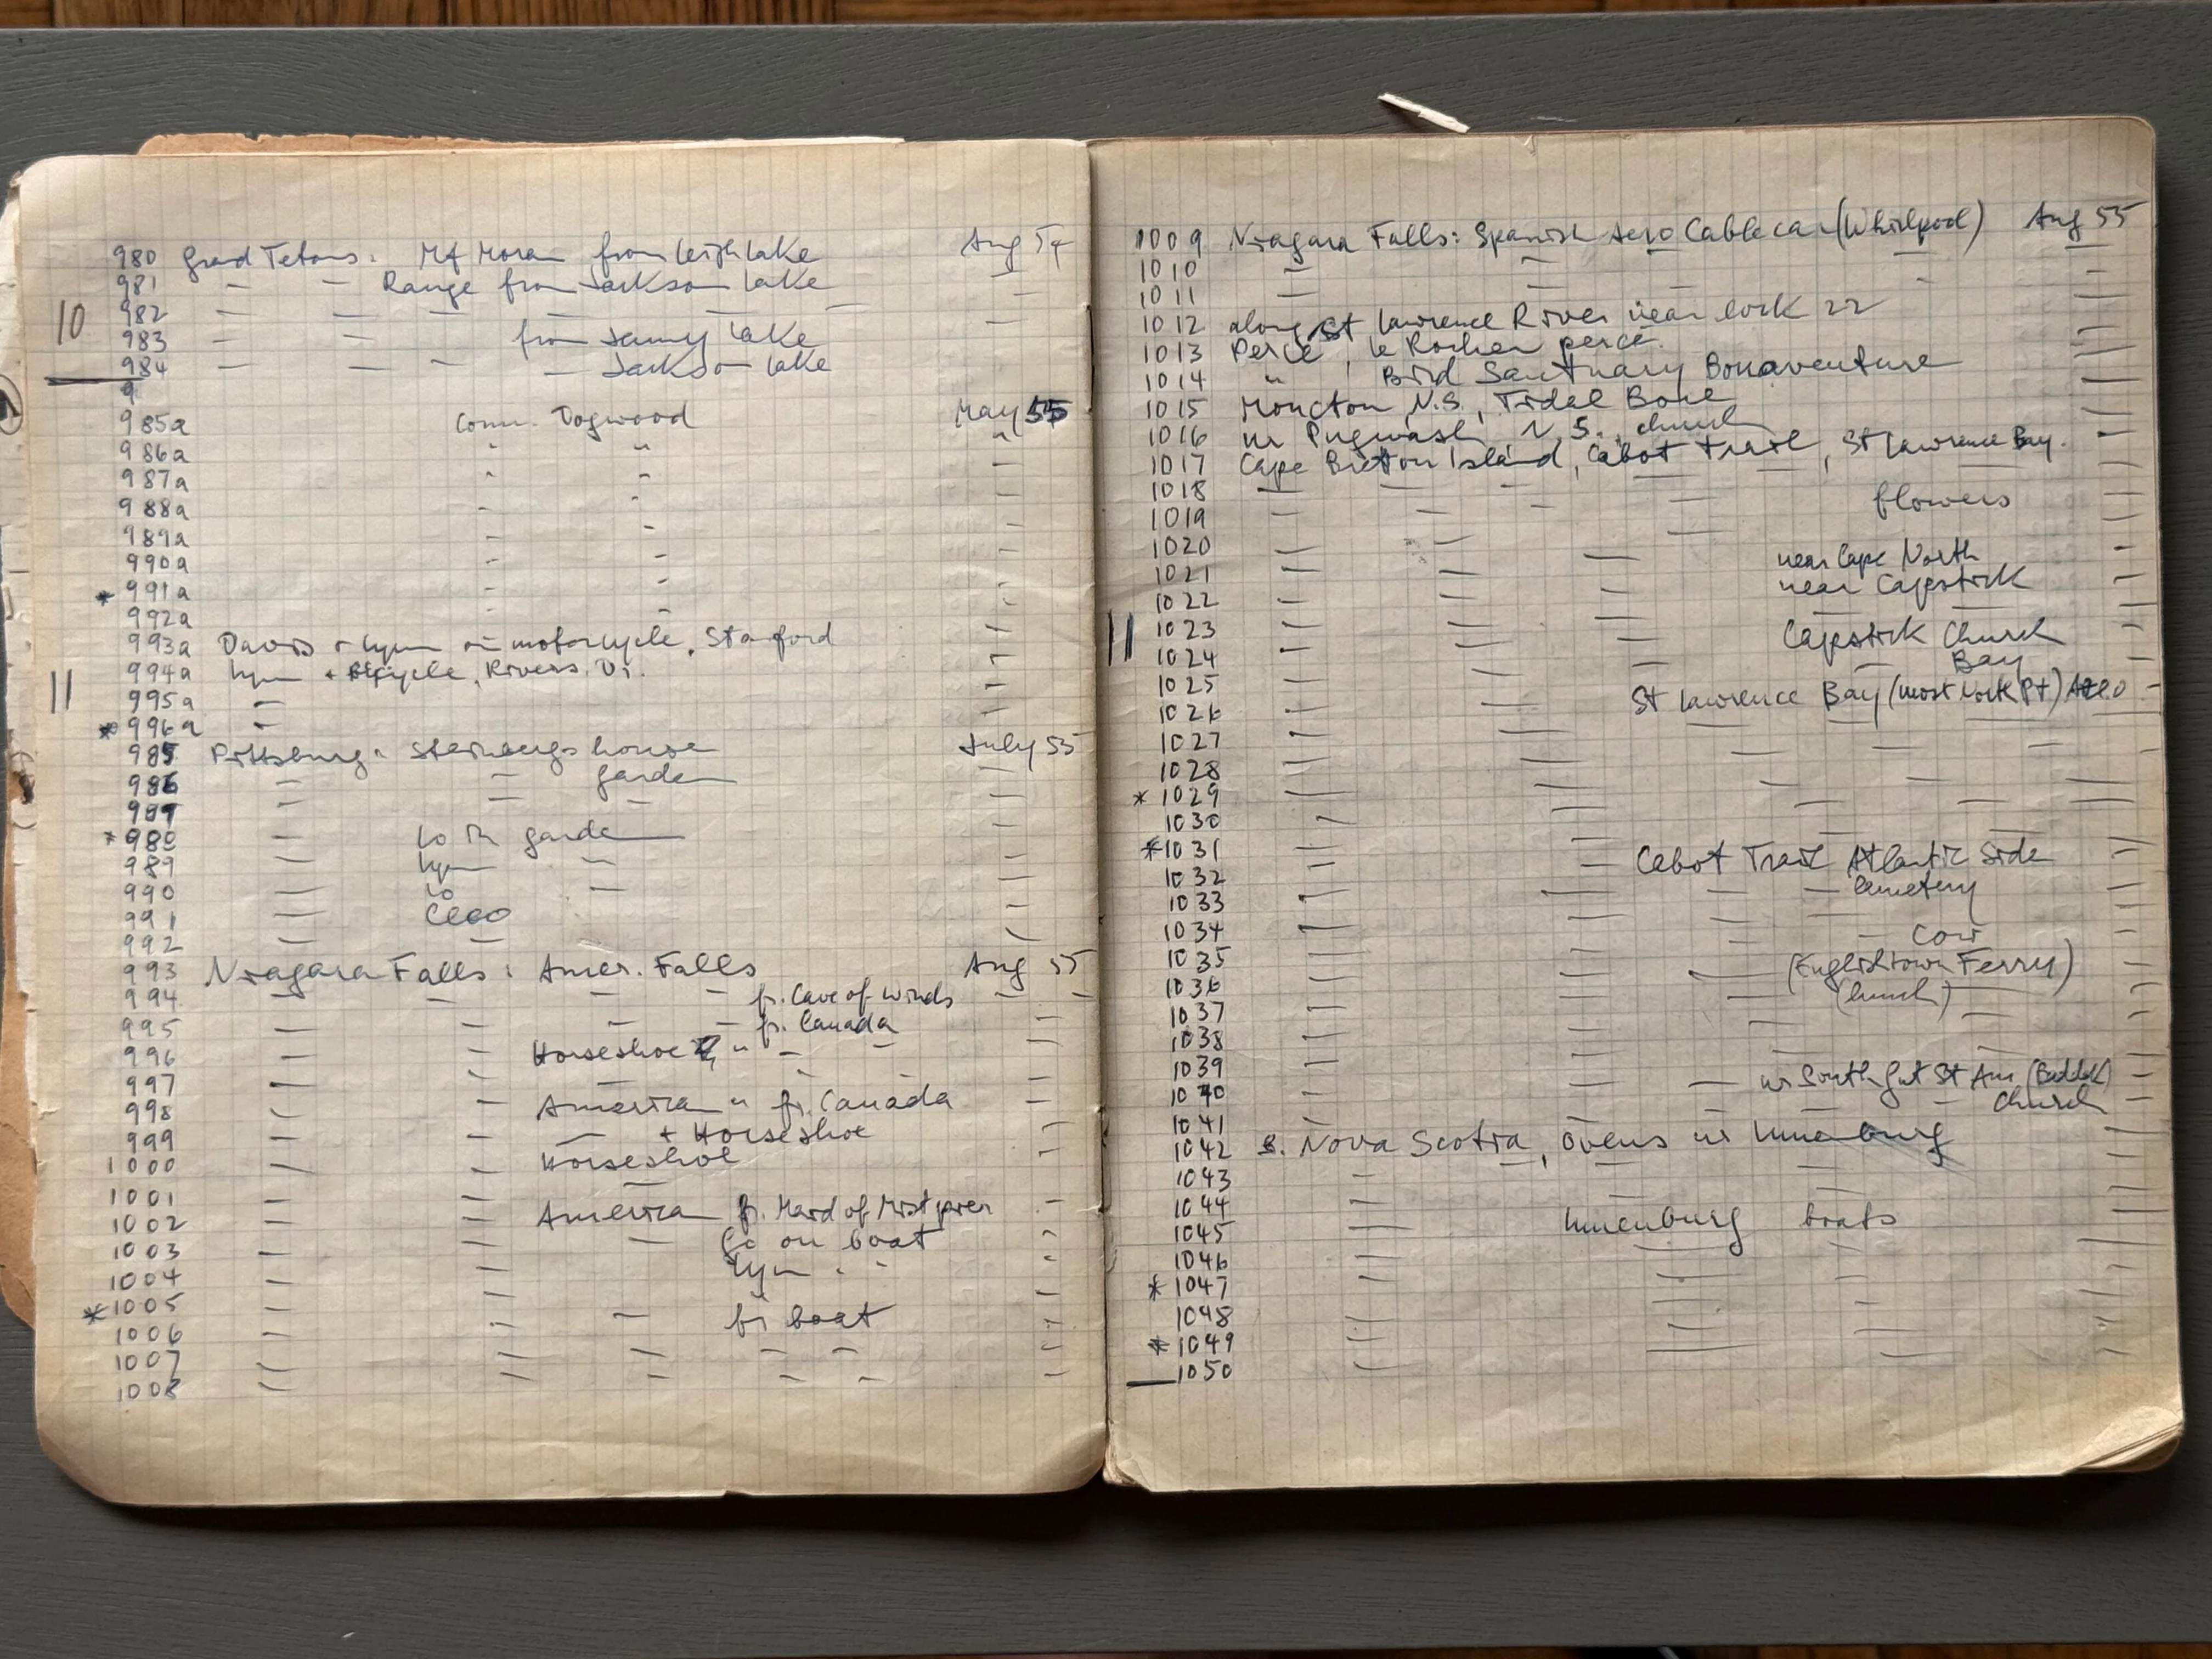 980 Grad Tetons: Mt Moran from Leigh Lake Aug 54
981 — — Range from Jackson Lake —
10
982 — — — — — —
983 — — from Jenny Lake
984 — — — — Jackson Lake
9
985a Conn. Dogwood May 55
986a " " "
987a " " —
988a " " —
989a — " —
990a — " —
* 991a — " —
992a - " -
993a Davis + Lynn on motorcycle, Stanford —
994a Lynn + Bicycle, Rivers. Dr. —
11
995a — —
* 996a — —
985 Pittsburg: Steinbergs house July 55
986 — — garden —
987 — — — —
* 988 — Lo in garden —
989 — Lynn — —
990 — Lo — —
991 — Cleo —
992 — — —
993 Niagara Falls: Amer. Falls Aug 55
994 — — — — fr. Cave of Winds — —
995 — — — — fr. Canada —
996 — — Horseshoe F. " — — —
997 — — — - - —
998 — — American " fr. Canada —
999 — — — + Horseshoe —
1000 — — Horseshoe —
1001 — — — —
1002 — — American fr. Maid of Mist pier -
1003 — — — Lo on boat -
1004 — — Lynn " " -
* 1005 — — —
1006 — — — fr boat -
1007 — — — — — -
1008 — — — — — -
1009 Niagara Falls: Spanish Aero Cable car (Whirlpool) Aug 55
1010 — — — —
1011 — — - —
1012 along St Lawrence River near lock 22 —
1013 Percé, le Rocher percé. —
1014 " , Bird Sanctuary Bonaventure —
1015 Moncton N.S., Tidal Bore —
1016 nr Pugwash, N.S., church —
1017 Cape Breton Island, Cabot Trail, St Lawrence Bay. —
1018 — — — — — —
1019 — — — — flowers —
1020 — — — —
1021 — — — near Cape North —
1022 — — — near Capstick —
11
1023 — — — — — —
1024 — — — Capstick Church —
1025 — — — — — Bay —
1026 — — St Lawrence Bay (most North Pt)
1027 — — — — — —
1028 — — — — — —
* 1029 — — — — —
1030 — — — — —
* 1031 — — — —
1032 — — Cabot Trail Atlantic Side —
1033 — — — — cemetery —
1034 — — — — —
1035 — — — — cow —
1036 — — — (Englishtown Ferry) —
1037 — — — (lunch) —
1038 — — — — —
1039 — — — — —
1040 — — — nr South Gut St Ann (Baddek) —
1041 — — — — Church —
1042 S. Nova Scotia, Ovens nr Lunenburg —
1043 — — — — —
1044 — — — —
1045 — Lunenburg boats —
1046 — — — —
* 1047 — — — —
1048 — — — —
* 1049 — — — —
1050 — — — —